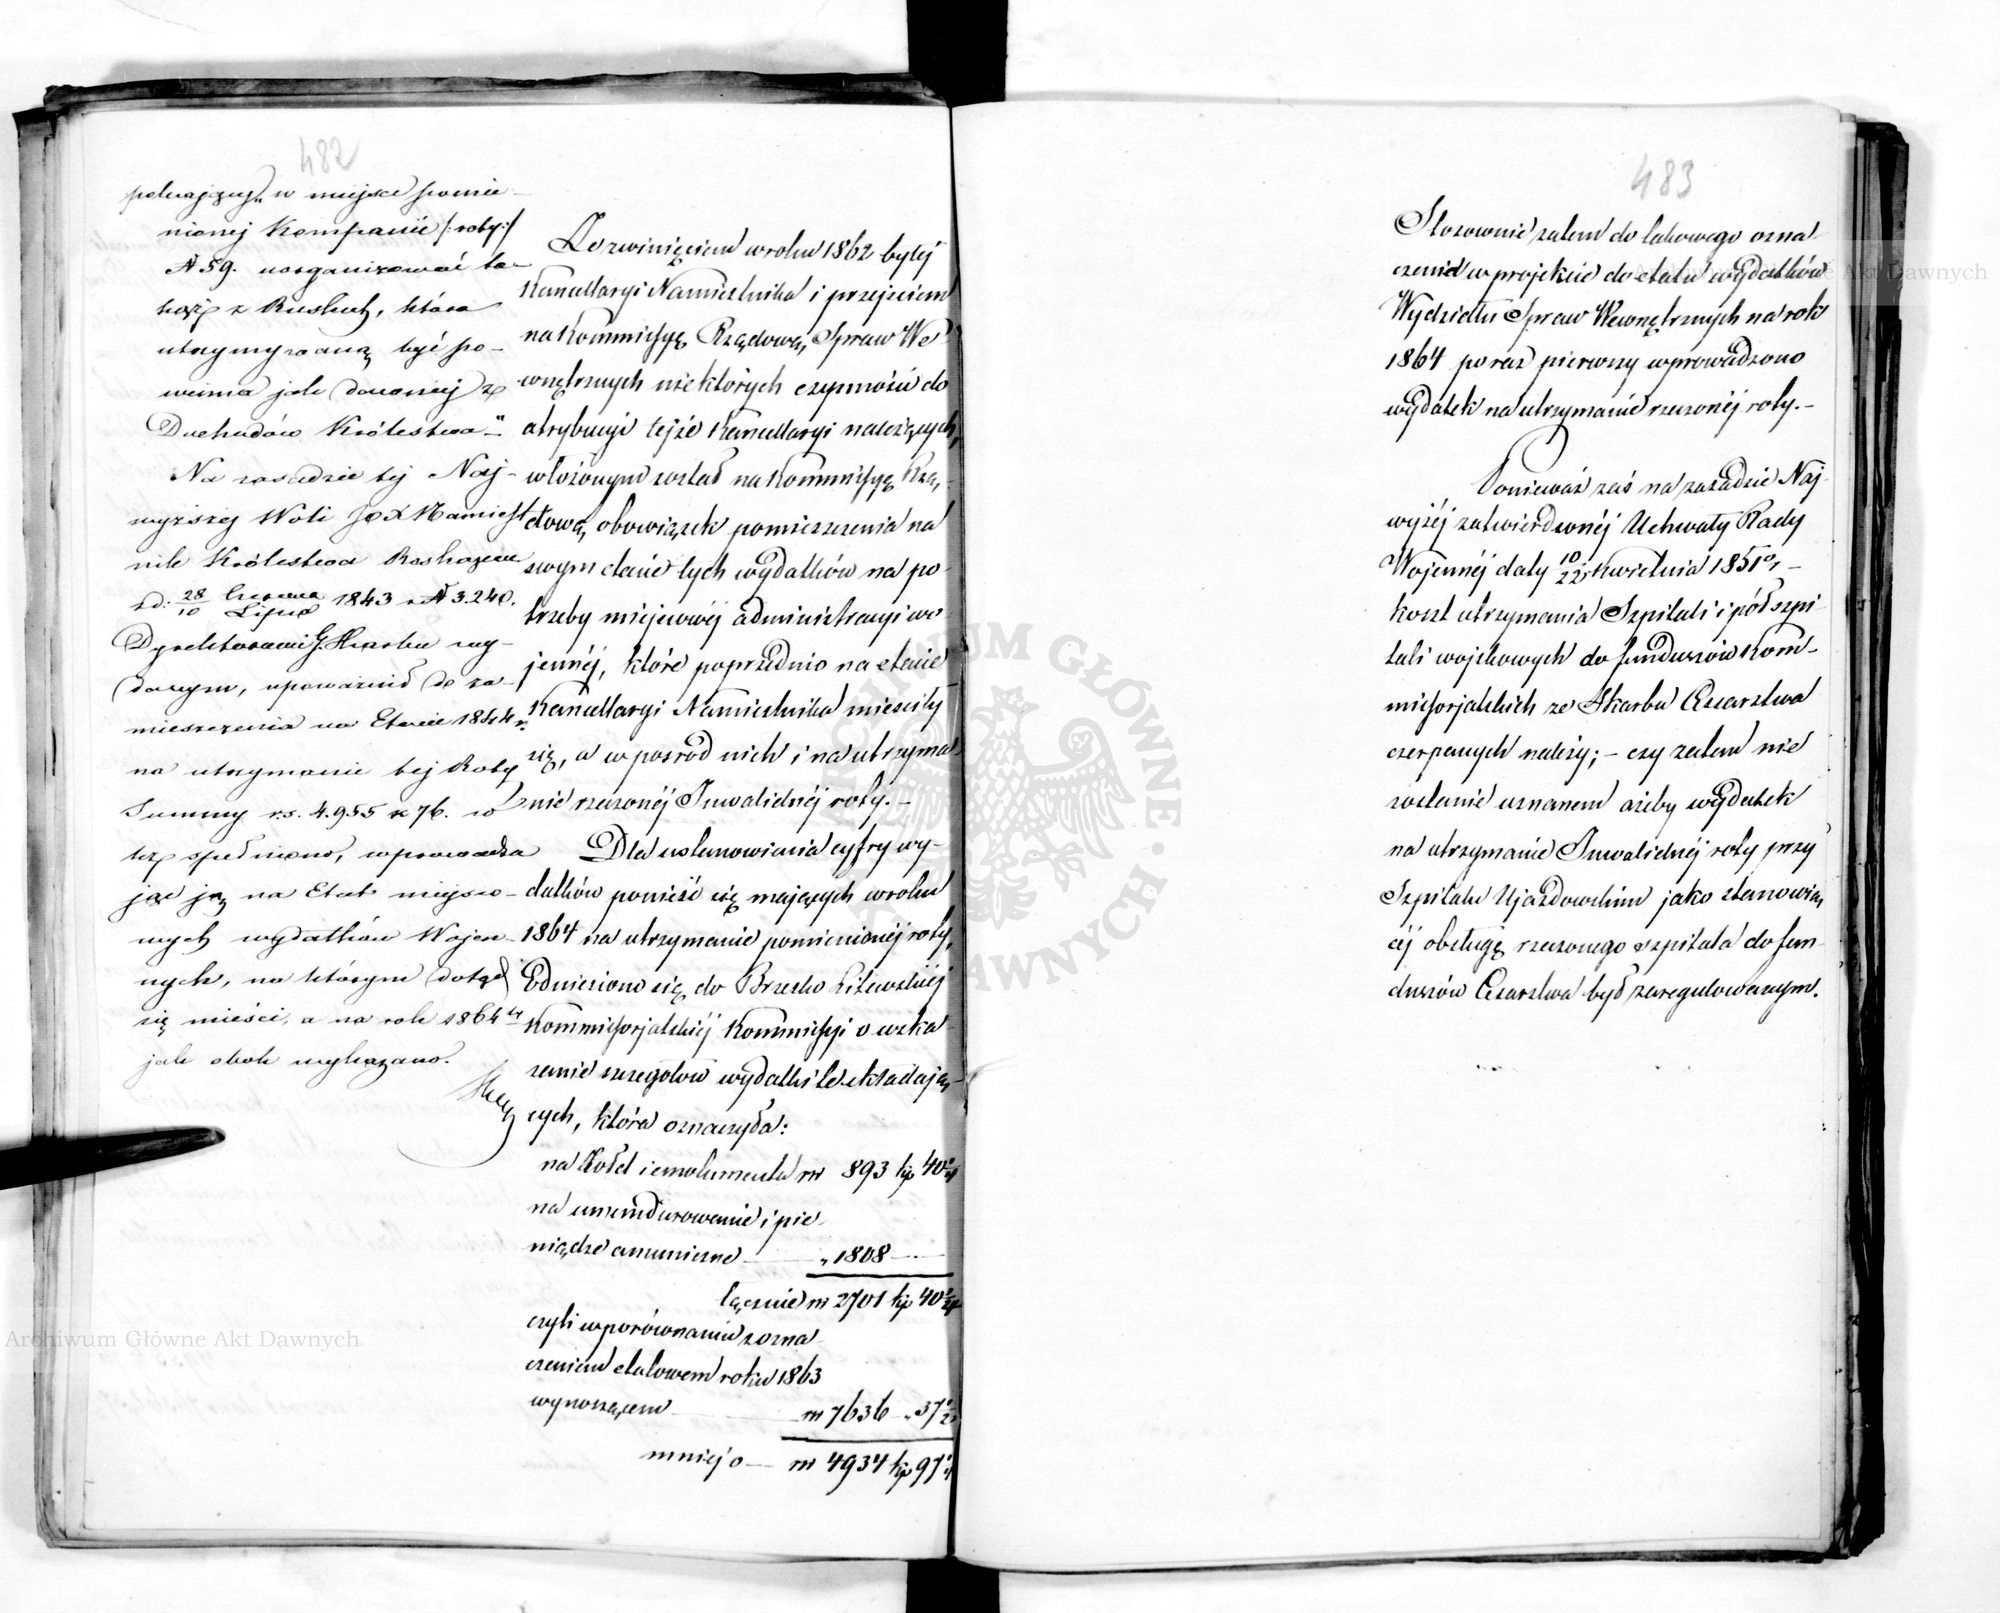 482
pełniający w miejsce pomie-
nionej Kompanii /:roty:/
№ 59. uorganizować ta-
kąż z Ruskich, która
utrzymywaną być po-
winna jak dawniej ze
Dochodów Królestwa"-
Na zasadzie tej Naj-
wyższej Woli JOX Namiest
nik Królestwa Reskryptem
z d: 28/10 Czerwca/Lipca 1843 r № 3.240.
Dyrektorowi G. Skarbu wy-
danym, upoważnił do za-
mieszczenia na Etacie 1844 r.
na utrzymanie tej Roty
Summy rs. 4.955 k 76. co
też spełniono, wprowadza
jąc ją na Etat miejsco-
wych wydatków Wojen-
nych, na którym dotąd
się mieści, a na rok 1864ty
jak obok wykazano.
Ze zwinięciem w roku 1862 byłej
Kancellaryi Namiestnika i przejściem
na Kommissyę Rządową Spraw We-
wnętrznych niektórych czynności do
atrybucyi tejże Kancellaryi należących,
włożonym został na Kommissyę Rzą-
dową obowiązek pomieszczenia na
swym etacie tych wydatków na po-
trzeby miejscowéj administracyi wo-
jennéj, które poprzednio na etacie
Kancellaryi Namiestnika mieściły
się, a w pośród nich i na utrzyma-
nie rzeczonéj Inwalidnéj roty.-
Dla ustanowienia cyfry wy-
datków ponieść się mających w roku
1864 na utrzymanie pomienionéj roty,
Odniesiono się do Brzesko Litewskiéj
Kommissorjatskiéj Kommissyi o wska-
zanie szczegółów wydatki te składają-
cych, która oznaczyła:
na żołd i emolumenta rs 893 kp 40
na umundurowanie i pie-
niądze amuniczne — „ 1808 —
łącznie rs 2701 kp 40
czyli w porównaniu z ozna-
czeniem etatowem roku 1863
wynoszącem — rs 7636 „ 37
mniej o — rs 4934 kp 97
483
Stosownie zatem do takowego ozna-
czenia w projekcie do etatu wydatków
Wydziału Spraw Wewnętrznych na rok
1864 po raz pierwszy wprowadzono
wydatek na utrzymanie rzeczonéj roty.-
Ponieważ zaś na zasadzie Naj-
wyżéj zatwierdzonéj Uchwały Rady
Wojennéj daty 10/22 Kwietnia 1851 r. -
koszt utrzymania Szpitali i pół szpi-
tali wojskowych do funduszów Kom-
missorjatskich ze Skarbu Cesarstwa
czerpanych należy; - czy zatem nie
zostanie uznanem ażeby wydatek
na utrzymanie Inwalidnéj roty przy
Szpitalu Ujazdowskim jako stanowią-
céj obsługę rzeczonego szpitala do fun-
duszów Cesarstwa był zaregulowanym.
Archiwum Główne Akt Dawnych
Archiwum Główne Akt Dawnych
ARCHIWUM GŁÓWNE AKT DAWNYCH